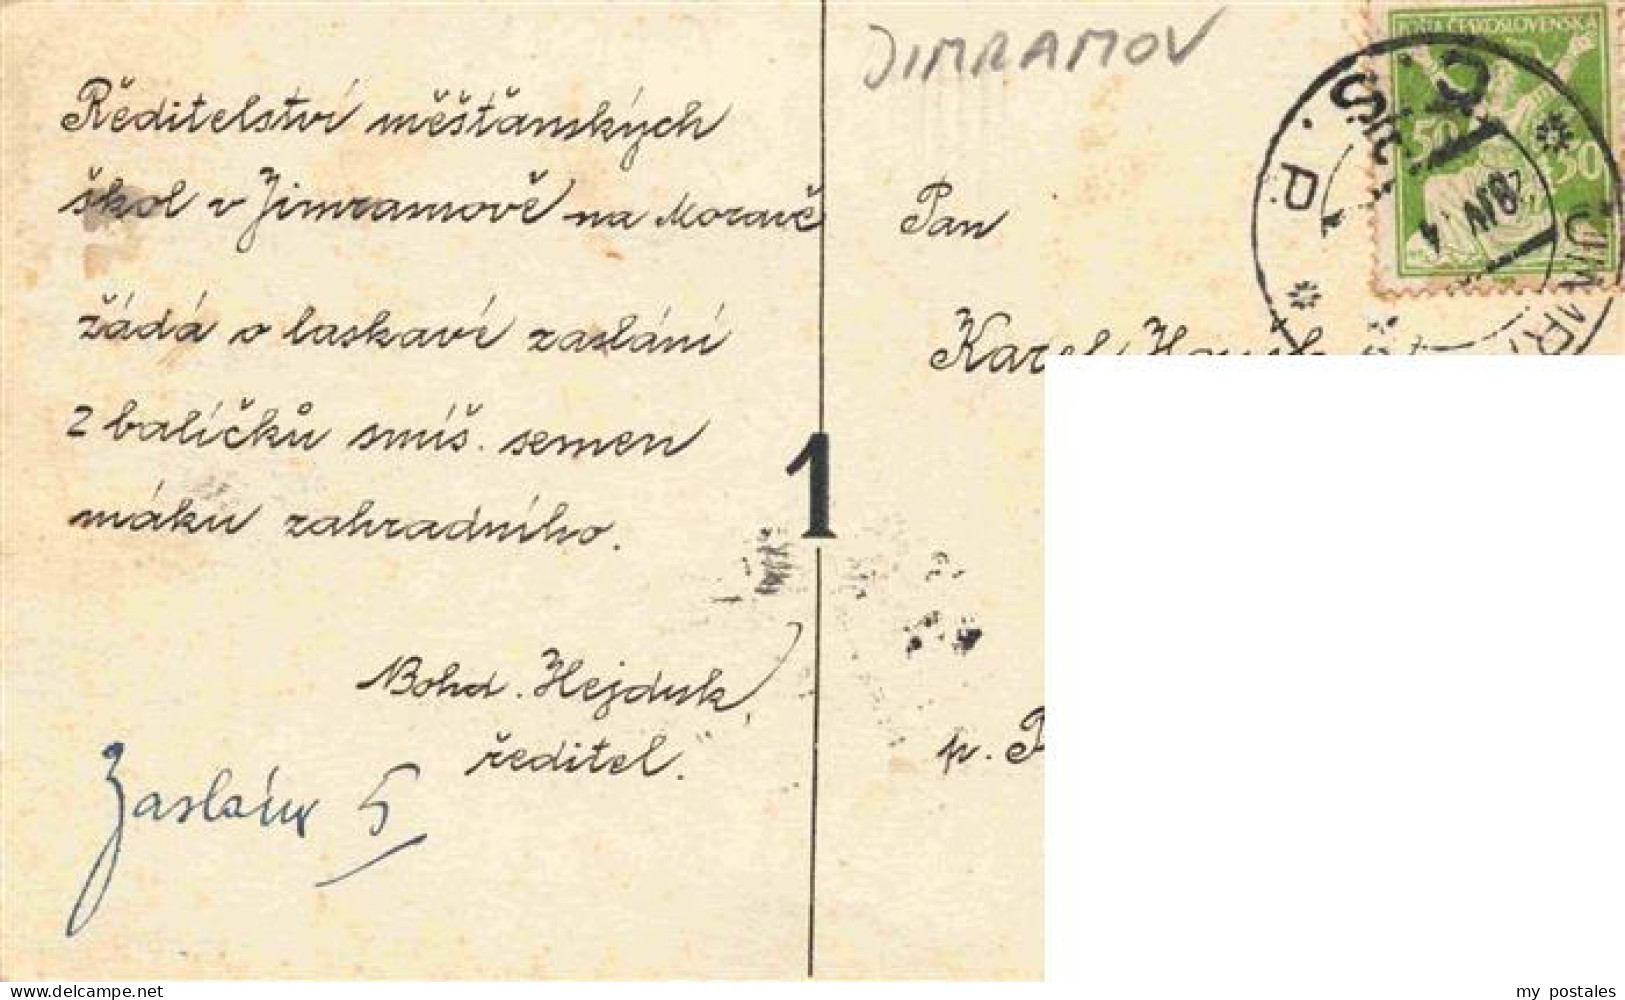 JIMRAMOV
POŠTA ČESKOSLOVENSKÁ
50 50
Ředitelství měšťanských
škol v Jimramově na Moravě
žádá o laskavé zaslání
2 balíčků smíš. semen
máku zahradního.
Bohd. Hejduk,
ředitel.
Zaslány 5
1
Pan
Karel
p.
my postales
www.delcampe.net